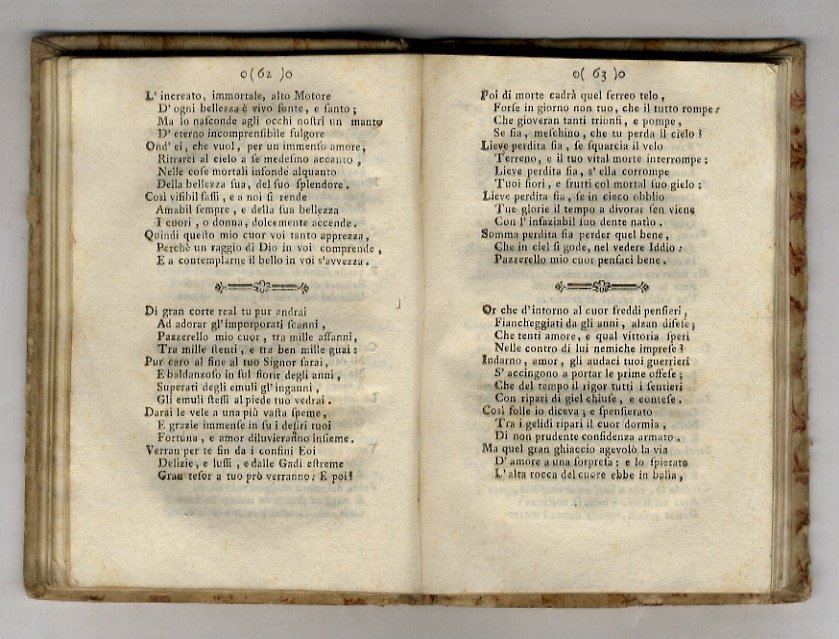 o( 62 )o
L' increato, immortale, alto Motore
D' ogni bellezza è vivo fonte, e ſanto;
Ma lo naſconde agli occhi noſtri un manto
D' eterno incomprenſibile fulgore
Ond' ei, che vuol, per un immenſo amore,
Ritrarci al cielo a ſe medeſmo accanto,
Nelle coſe mortali infonde alquanto
Della bellezza ſua, del ſuo ſplendore.
Così viſibil faſſi, e a noi ſi rende
Amabil ſempre, e della ſua bellezza
I cuori, o donna, dolcemente accende.
Quindi queſto mio cuor voi tanto apprezza,
Perchè un raggio di Dio in voi comprende,
E a contemplarne il bello in voi s'avvezza.
Di gran corte real tu pur andrai
Ad adorar gl'imporporati ſcanni,
Pazzerello mio cuor, tra mille affanni,
Tra mille ſtenti, e tra ben mille guai:
Pur caro al fine al tuo Signor ſarai,
E baldanzoſo in ſul fiorir degli anni,
Superati degli emuli gl'inganni,
Gli emuli ſteſſi al piede tuo vedrai.
Darai le vele a una più vaſta ſpeme,
E grazie immenſe in ſu i deſiri tuoi
Fortuna, e amor diluvieranno inſieme.
Verran per te fin da i confini Eoi
Delizie, e luſſi, e dalle Gadi eſtreme
Gran teſor a tuo prò verranno: E poi?
o( 63 )o
Poi di morte cadrà quel ferreo telo,
Forſe in giorno non tuo, che il tutto rompe:
Che gioveran tanti trionfi, e pompe,
Se fia, meſchino, che tu perda il cielo?
Lieve perdita fia, ſe ſquarcia il velo
Terreno, e il tuo vital morte interrompe;
Lieve perdita fia, s' ella corrompe
Tuoi fiori, e frutti col mortal ſuo gielo;
Lieve perdita fia, ſe in cieco obblio
Tue glorie il tempo a divorar ſen viene
Con l' inſaziabil ſuo dente natìo.
Somma perdita fia perder quel bene,
Che in ciel ſi gode, nel vedere Iddio:
Pazzerello mio cuor penſaci bene.
Or che d'intorno al cuor freddi penſieri,
Fiancheggiati da gli anni, alzan difeſe;
Che tenti amore, e qual vittoria ſperi
Nelle contro di lui nemiche impreſe?
Indarno, amor, gli audaci tuoi guerrieri
S' accingono a portar le prime offeſe;
Che del tempo il rigor tutti i ſentieri
Con ripari di giel chiuſe, e conteſe.
Così folle io diceva; e ſpenſierato
Tra i gelidi ripari il cuor dormia,
Di non prudente confidenza armato.
Ma quel gran ghiaccio agevolò la via
D' amore a una ſorpreſa; e lo ſpietato
L' alta rocca del cuore ebbe in balìa,